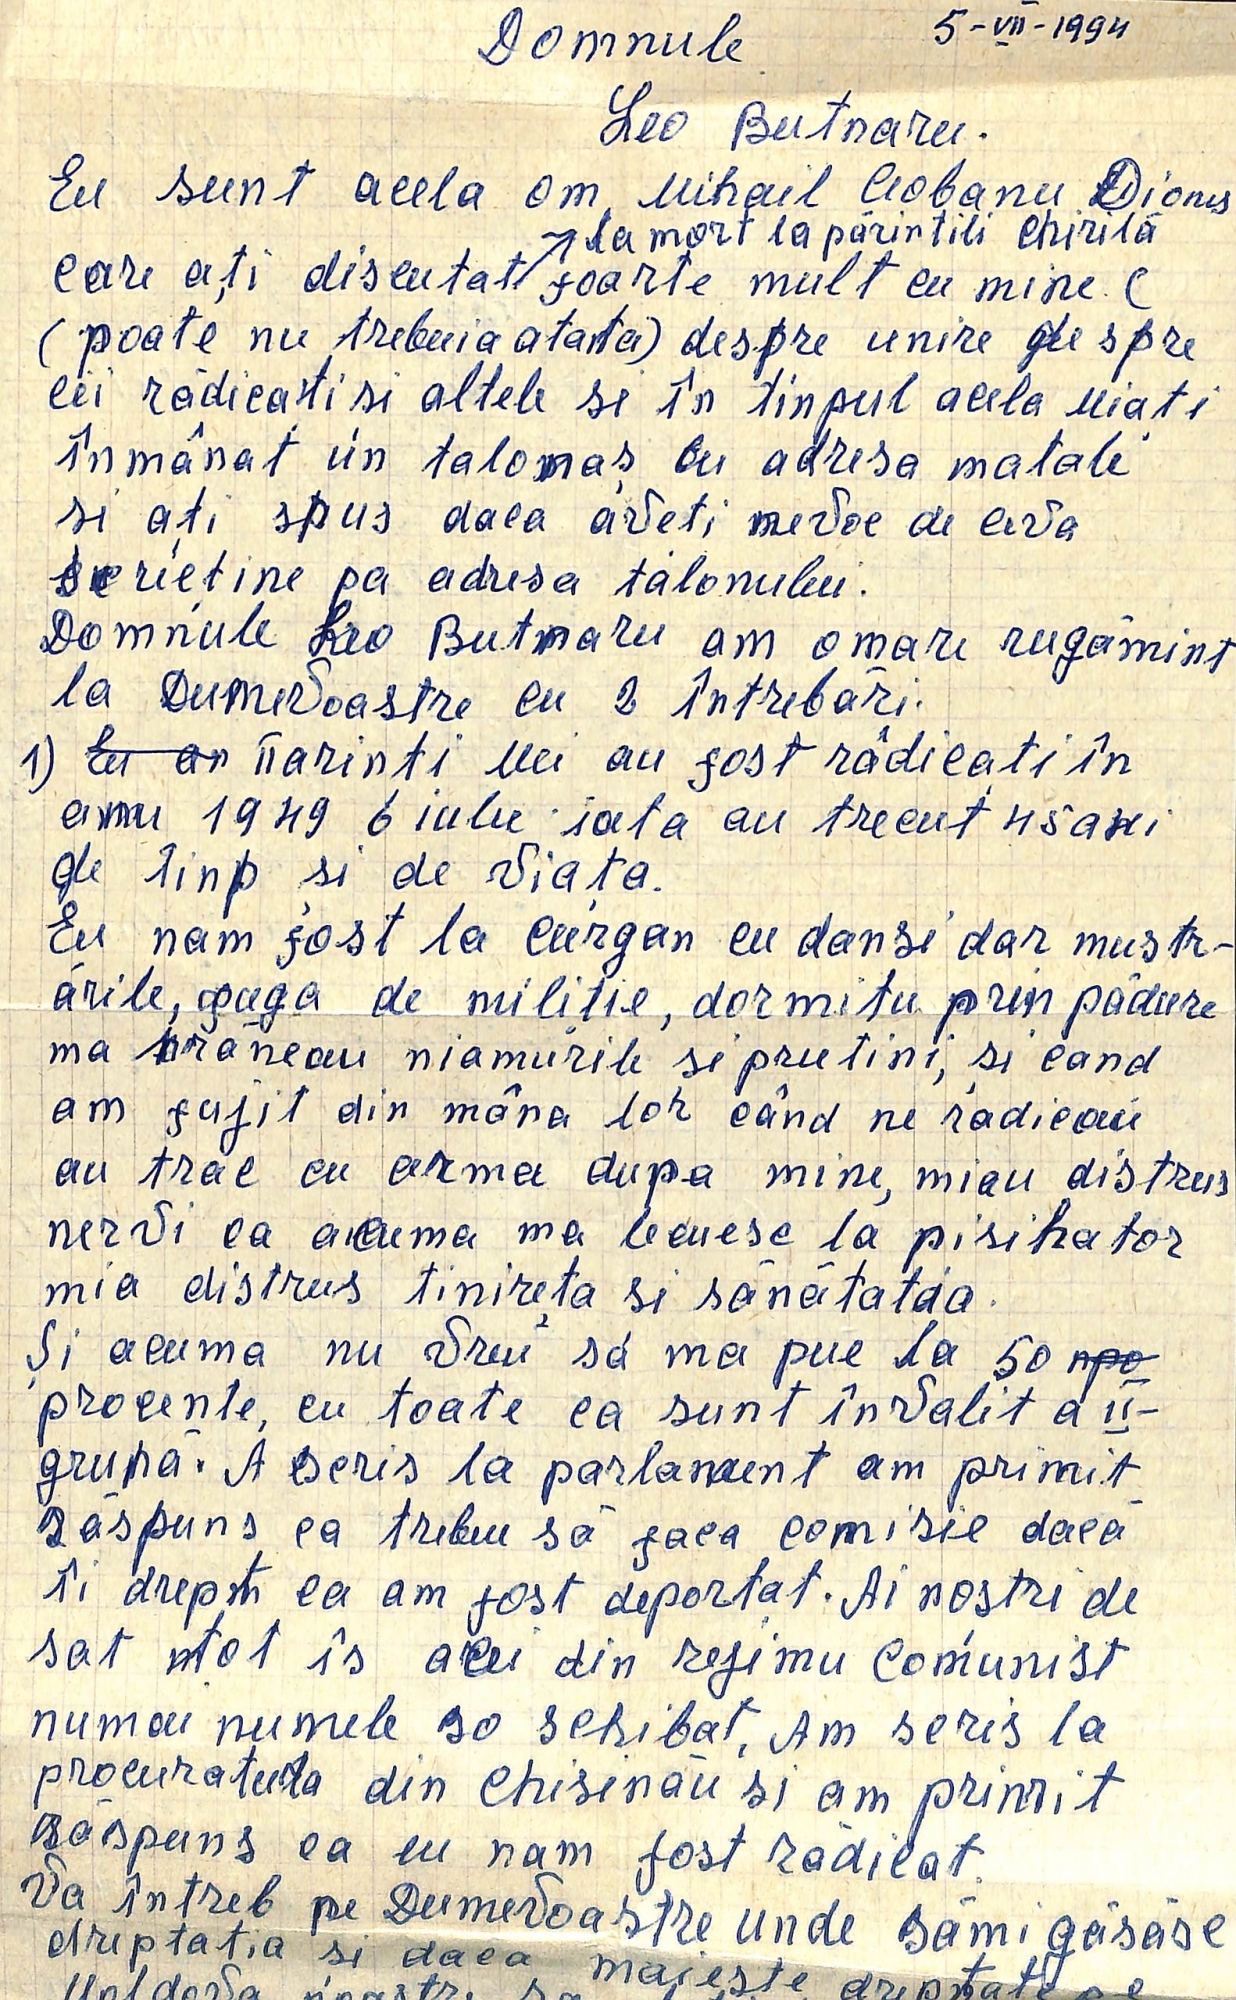 5-VII-1994
Domnule
Leo Butnaru.
Eu sunt acela om Mihail Ciobanu Dionis
la mort la părintili Chirilă
care ați discutat foarte mult cu mine (
(poate nu trebuia atanta) despre unire despre
cii rădicați si altele si în tinpul acela miati
înmânat un talonaș cu adresa matale
si ați spus daca aveti nevoe de ceva
scrietine pa adresa talonului.
Domnule Leo Butnaru am omare rugămint
la Dumevoastre cu 2 întrebări.
1) Eu an Parinți mei au fost rădicați în
annu 1949 6 iulie iata au trecut 45 ani
de tinp si de viața.
Eu nam fost la Curgan cu danși dar mustr-
ările, guga de miliție, dormitu prin pădure
ma hrăneau niamurile si prutini, si cand
am fujit din mâna lor când ne radicau
au trac cu arma dupa mine, miau distrus
nervi ca acuma ma lecuesc la pisihator
mia distrus tinirețа si sănătatda.
Și acuma nu vreu să ma pue la 50 про
procente, cu toate ca sunt învalit a II-
grupă. A scris la parlament am primit
răspuns ca trebu să faca comisie dacă
îi drept ca am fost deportat. Ai nostri de
sat tot îs acei din rejimu comunist
numai numele so schibat, Am scris la
procuratura din Chisinău si am primit
răspuns ca eu nam fost rădicat.
Va întreb pe Dumevoastre unde sămi găsăsc
dreptatia si daca maieste dreptate pe
Moldova noastr sa